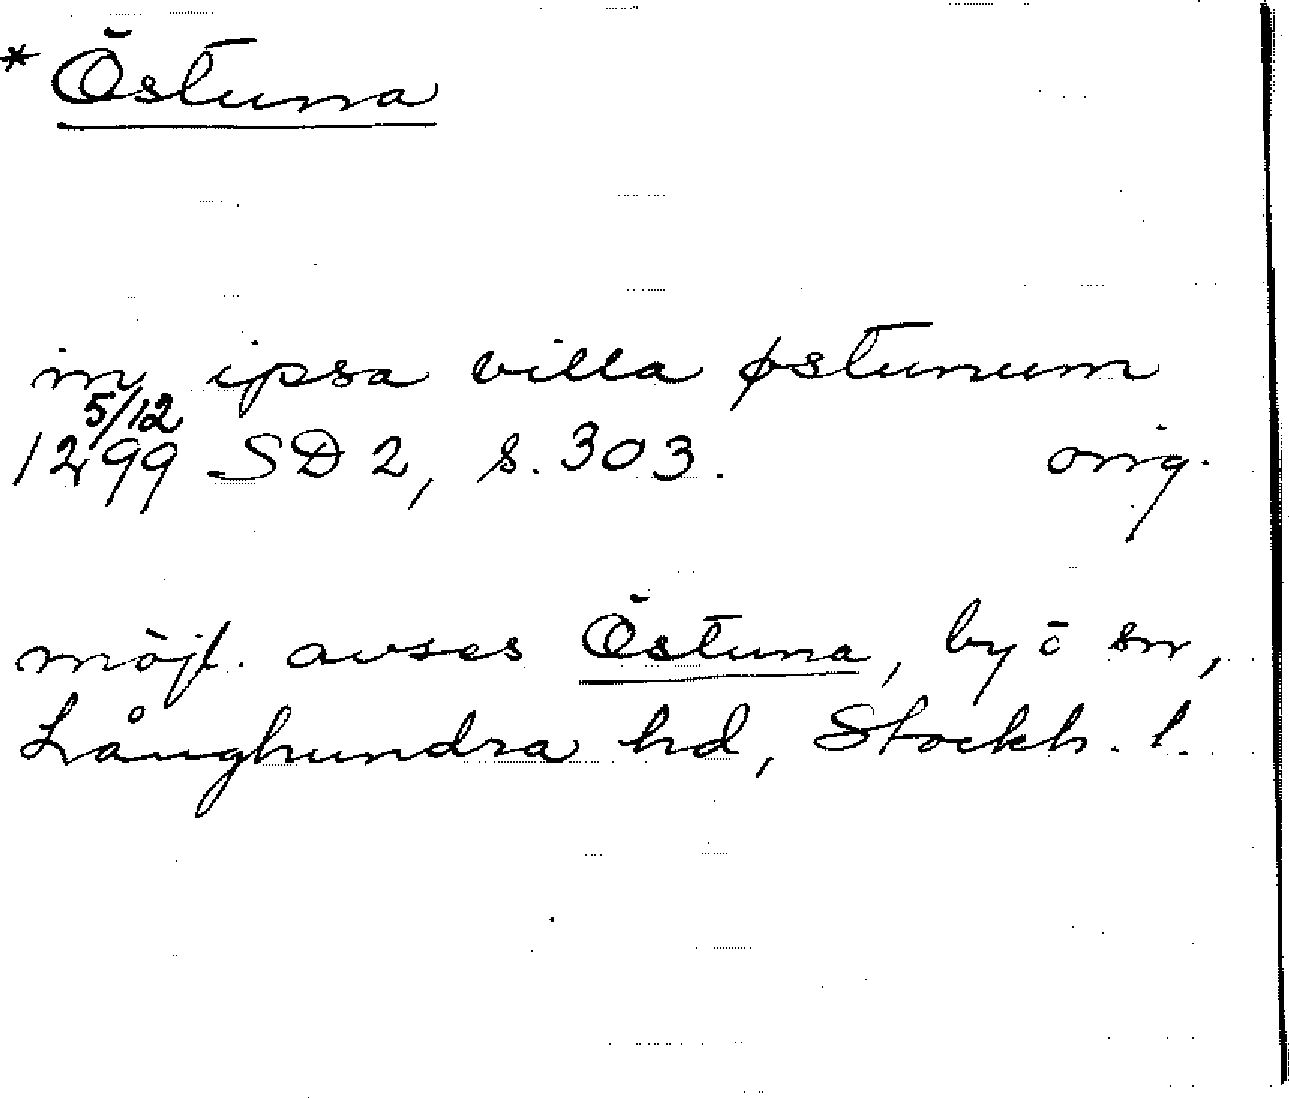 * Östuna
in ipsa villa østunum
5/12
1299 SD 2, s. 303. orig.
möjl. avses Östuna, by ö sn,
Långhundra hd, Stockh. l.